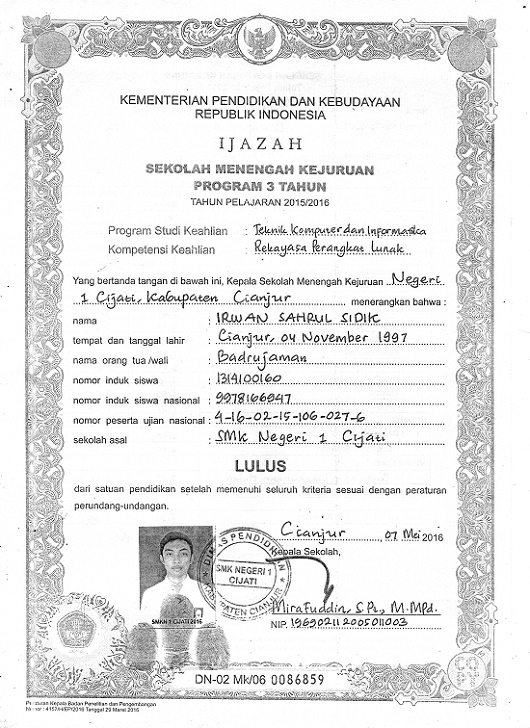 KEMENTERIAN PENDIDIKAN DAN KEBUDAYAAN
REPUBLIK INDONESIA
IJAZAH
SEKOLAH MENENGAH KEJURUAN
PROGRAM 3 TAHUN
TAHUN PELAJARAN 2015/2016
Program Studi Keahlian : Teknik Komputer dan Informatika
Kompetensi Keahlian : Rekayasa Perangkat Lunak
Yang bertanda tangan di bawah ini, Kepala Sekolah Menengah Kejuruan Negeri
1 Cijati, Kabupaten Cianjur menerangkan bahwa :
nama : IRWAN SAHRUL SIDIK
tempat dan tanggal lahir : Cianjur, 04 November 1997
nama orang tua /wali : Badrujaman
nomor induk siswa : 1314100160
nomor induk siswa nasional : 9978166947
nomor peserta ujian nasional : 4-16-02-15-106-027-6
sekolah asal : SMK Negeri 1 Cijati
LULUS
dari satuan pendidikan setelah memenuhi seluruh kriteria sesuai dengan peraturan
perundang-undangan.
Cianjur, 07 Mei 2016
Kepala Sekolah,
DINAS PENDIDIKAN
SMK NEGERI 1
CIJATI
KABUPATEN CIANJUR
SMKN 1 CIJATI 2016
Mirafuddin, S.Pt., M.MPd.
NIP. 196902112005011003
DN-02 Mk/06 0086859
Peraturan Kepala Badan Penelitian dan Pengembangan
Nomor : 4157/H/EP/2016 Tanggal 29 Maret 2016